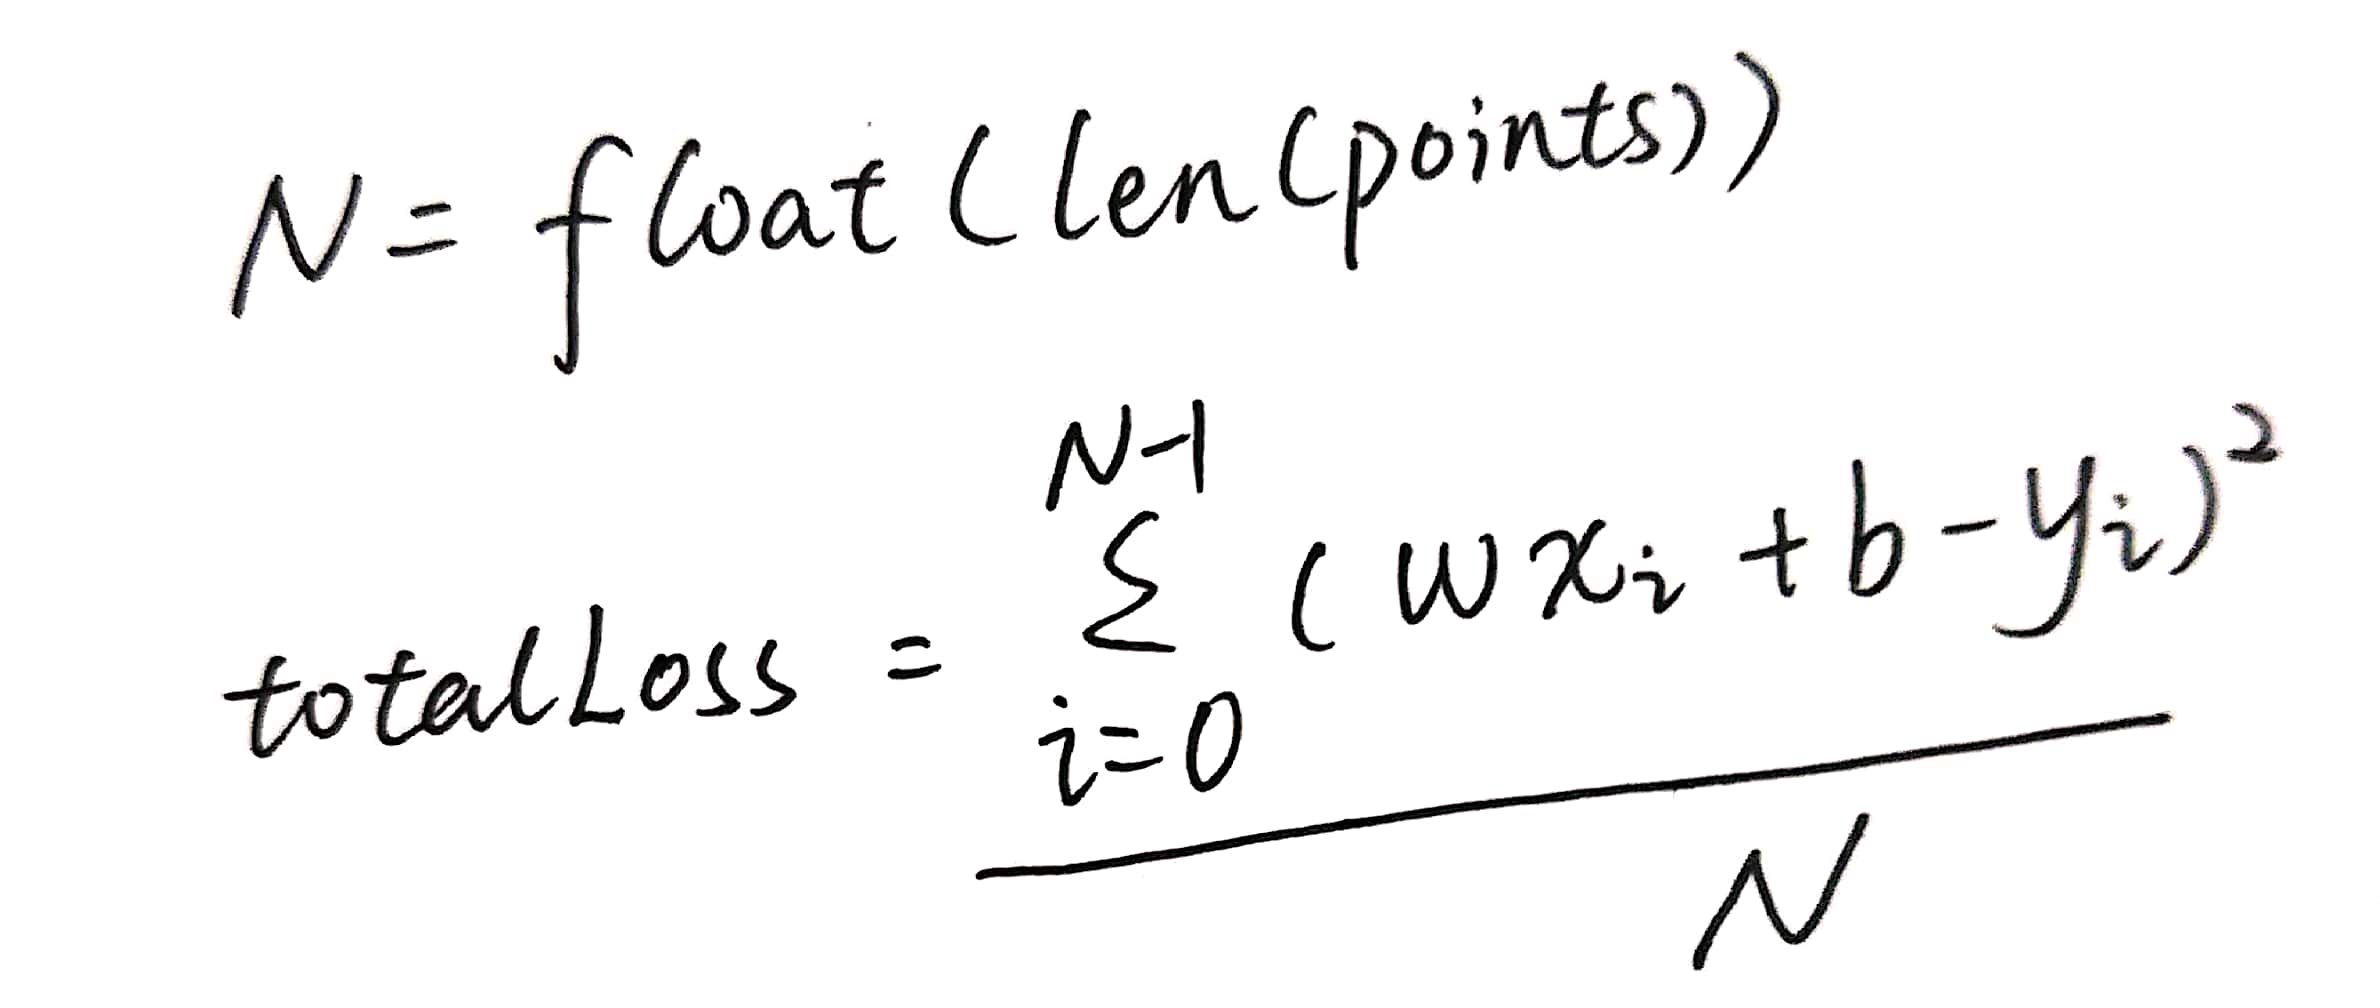 N = float(len(points))
totalLoss = \frac{\sum_{i=0}^{N-1} (wx_i + b - y_i)^2}{N}